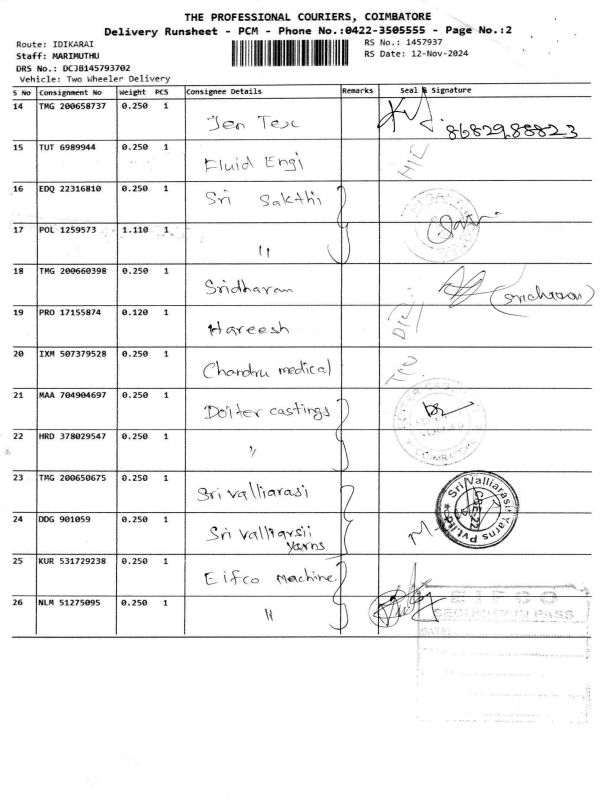 THE PROFESSIONAL COURIERS, COIMBATORE
Delivery Runsheet - PCM - Phone No.:0422-3505555 - Page No.:2
Route: IDIKARAI RS No.: 1457937
Staff: MARIMUTHU RS Date: 12-Nov-2024
DRS No.: DCJB145793702
Vehicle: Two Wheeler Delivery
S No Consignment No Weight PCS Consignee Details Remarks Seal & Signature
14 TMG 200658737 0.250 1 Jen Tex 8682988823
15 TUT 6989944 0.250 1 Fluid Engi
16 EDQ 22316810 0.250 1 Sri Sakthi
17 POL 1259573 1.110 1 "
18 TMG 200660398 0.250 1 Sridharan (Sridharan)
19 PRO 17155874 0.120 1 Hareesh
20 IXM 507379528 0.250 1 Chandru medical
21 MAA 704904697 0.250 1 Dolter castings
22 HRD 378029547 0.250 1 "
23 TMG 200650675 0.250 1 Sri valliarasi Sri Valliarasi Yarns Pvt.Ltd
24 DDG 901059 0.250 1 Sri valliarsii
yarns
25 KUR 531729238 0.250 1 Eifco Machine.
EIFCO
26 NLM 51275095 0.250 1 " SECURITY IN PASS
DATE: